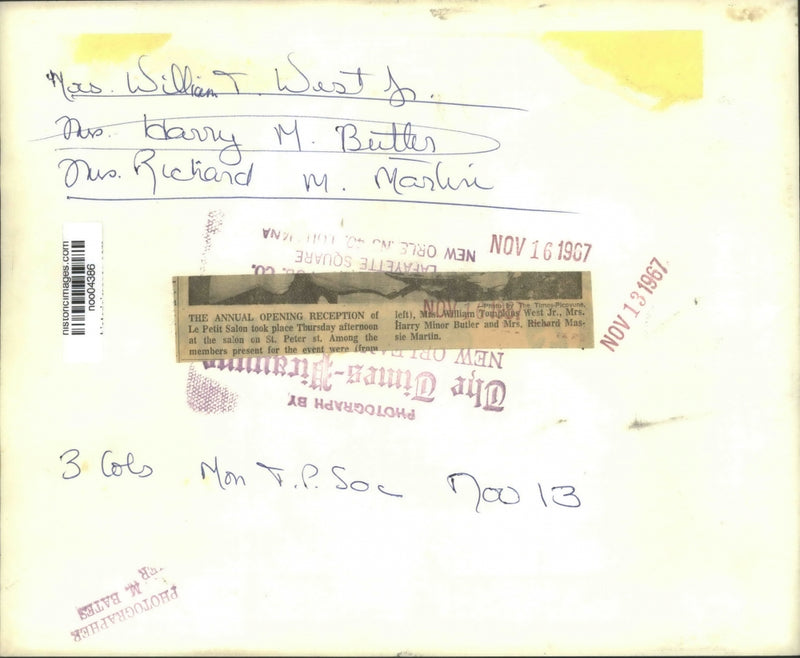 Mrs. William T. West Jr.
Mrs. Harry M. Butler
Mrs. Richard M. Martin
historicimages.com
noo04386
NOV 16 1967
NEW ORLE
LAFAYETTE SQUARE
CO.
NOV 13 1967
NOV 1
Photo by The Times-Picayune.
THE ANNUAL OPENING RECEPTION of
Le Petit Salon took place Thursday afternoon
at the salon on St. Peter st. Among the
members present for the event were (from
left), Mrs. William Tompkins West Jr., Mrs.
Harry Minor Butler and Mrs. Richard Mas-
sie Martin.
NEW ORLEA
The Times-Picayune
PHOTOGRAPH BY
3 Cols Mon T.P. Soc Nov 13
PHOTOGRAPHER
M. BATES